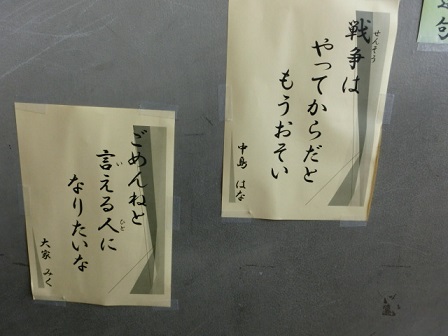 戦争は
やってからだと
もうおそい
中島 はな
ごめんねと
言える人に
なりたいな
大家 みく